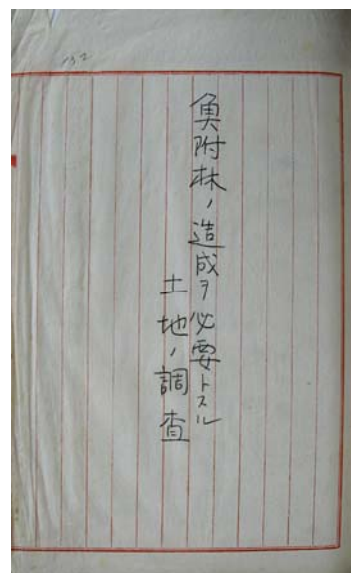 魚附林ノ造成ヲ必要トスル
土地ノ調査